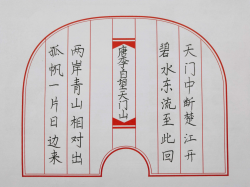 天门中断楚江开
碧水东流至此回
唐李白望天门山
两岸青山相对出
孤帆一片日边来